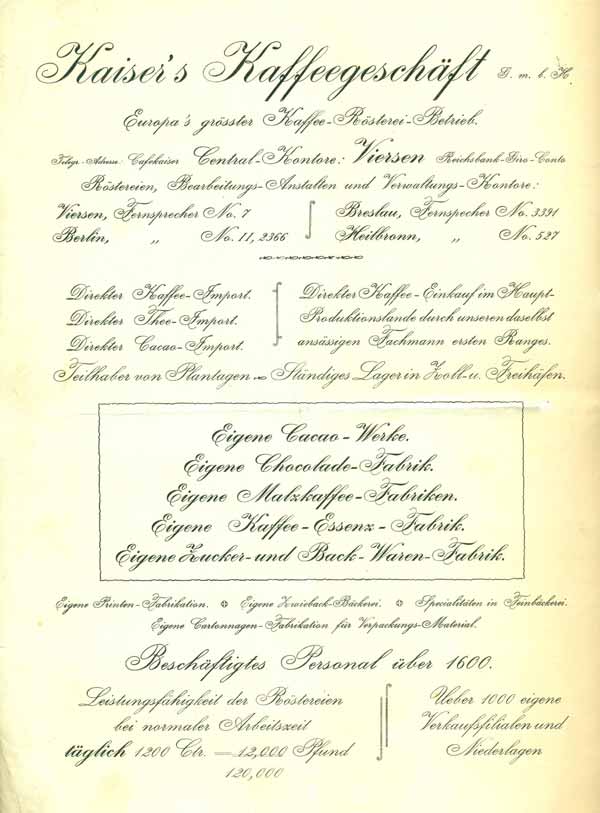 Kaiser's Kaffeegeschäft G. m. b. H.
Europa's grösster Kaffee-Rösterei-Betrieb.
Telegr.-Adresse: Cafékaiser Central-Kontore: Viersen Reichsbank-Giro-Conto
Röstereien, Bearbeitungs-Anstalten und Verwaltungs-Kontore:
Viersen, Fernsprecher No. 7
Berlin, „ No. 11, 2366
Breslau, Fernspecher No. 3391
Heilbronn, „ No. 527
Direkter Kaffee-Import.
Direkter Thee-Import.
Direkter Cacao-Import.
Direkter Kaffee-Einkauf im Haupt-
Produktionslande durch unseren daselbst
ansässigen Fachmann ersten Ranges.
Teilhaber von Plantagen Ständiges Lager in Zoll- u. Freihäfen.
Eigene Cacao-Werke.
Eigene Chocolade-Fabrik.
Eigene Malzkaffee-Fabriken.
Eigene Kaffee-Essenz-Fabrik.
Eigene Zucker- und Back-Waren-Fabrik.
Eigene Printen-Fabrikation. Eigene Zwieback-Bäckerei. Specialitäten in Feinbäckerei.
Eigene Cartonnagen-Fabrikation für Verpackungs-Material.
Beschäftigtes Personal über 1600.
Leistungsfähigkeit der Röstereien
bei normaler Arbeitszeit
täglich 1200 Ctr. = 12,000 Pfund
120,000
Ueber 1000 eigene
Verkaufsfilialen und
Niederlagen